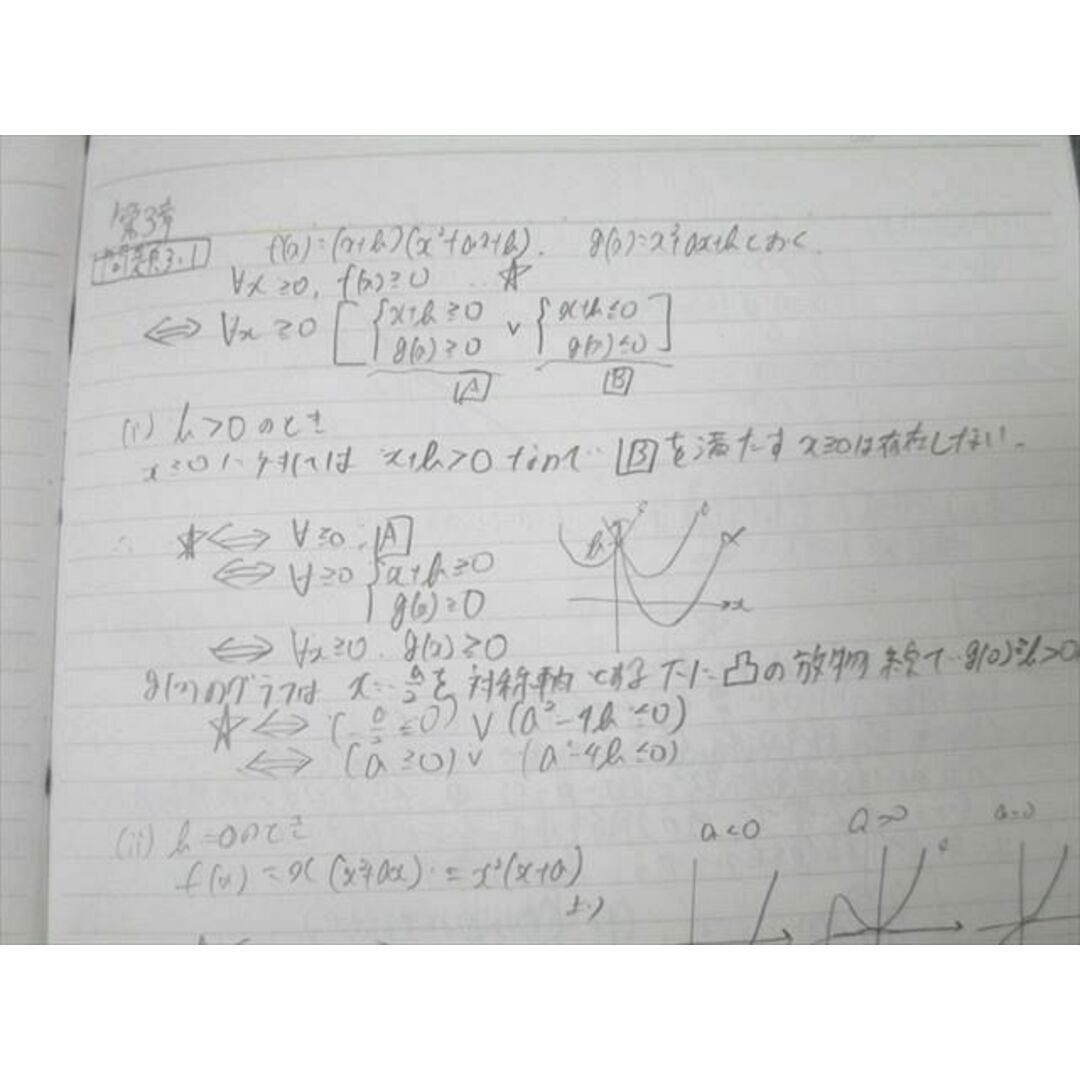 第3章
問題3.1 f(x)=(x+b)(x²+ax+b). g(x)=x²+ax+bとおく.
∀x≥0, f(x)≥0 … ☆
⇔ ∀x≥0 [ { x+b≥0 g(x)≥0 ∨ { x+b≤0 g(x)≤0 ]
A B
(i) b>0のとき
x≥0に対しては x+b>0 なので B を満たす x≥0は存在しない.
∴ ☆ ⇔ ∀≥0 : A
⇔ ∀≥0 { x+b≥0
g(x)≥0
b
x
⇔ ∀x≥0. g(x)≥0
g(x)のグラフは x=-a/2を 対称軸とする下に凸の放物線で g(0)=b>0
☆ ⇔ (-a/2≤0) ∨ (a²-4b≤0)
⇔ (a≥0) ∨ (a²-4b≤0)
(ii) b=0のとき
f(x)=x(x²+ax)=x²(x+a)
より
a<0 a>0 a=0